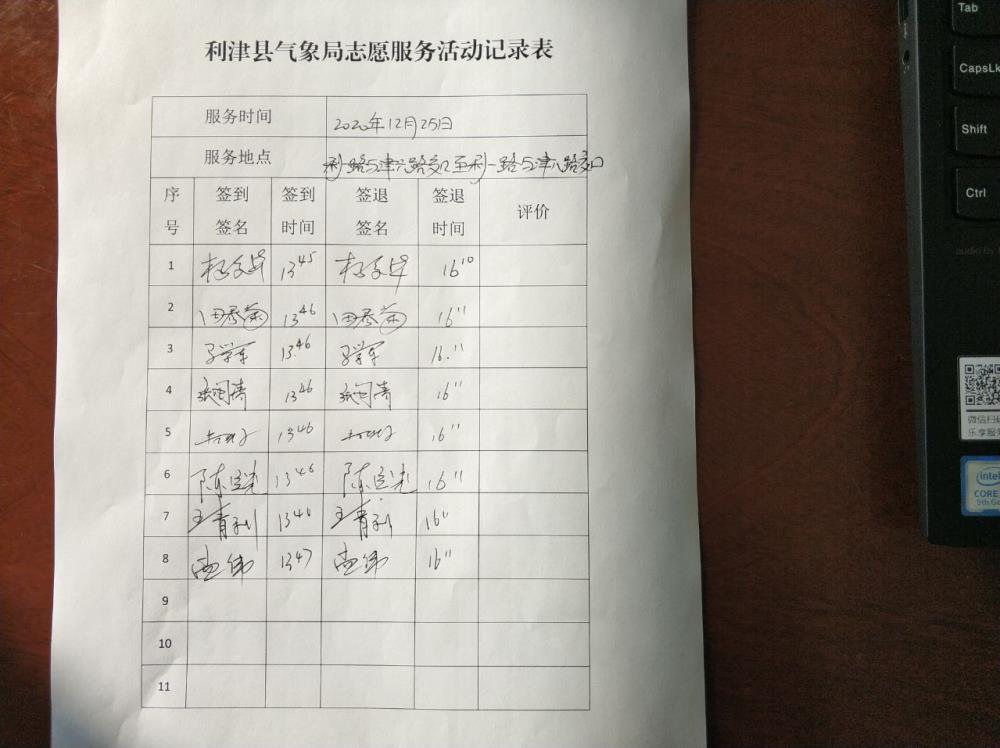 利津县气象局志愿服务活动记录表
服务时间 2020年12月25日
服务地点 利一路与津六路交口至利一路与津八路交口
序号 签到签名 签到时间 签退签名 签退时间 评价
1 13 45 16 10
2 田秀菊 13 46 田秀菊 16 11
3 13 46 16 11
4 13 46 16 11
5 13 46 16 11
6 13 46 16 11
7 王青利 13 46 王青利 16 11
8 13 47 16 11
9
10
11
Tab
CapsLk
Shift
Ctrl
audio by
微信扫
乐享服务
intel
CORE
9th Ge